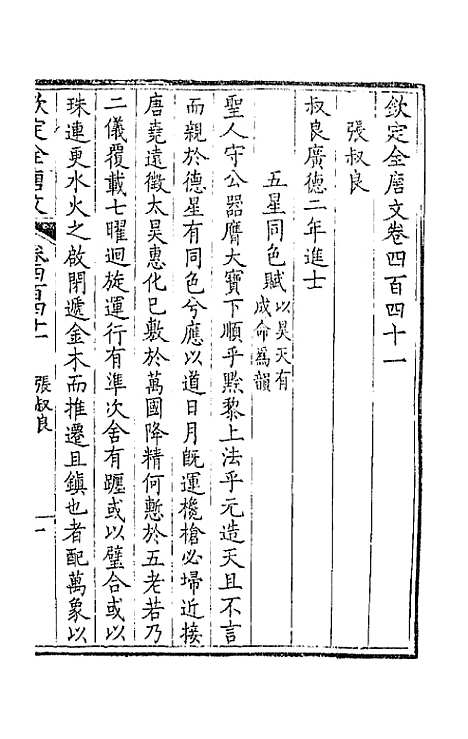 欽定全唐文卷四百四十一
張叔良
叔良廣德二年進士
五星同色賦以昊天有成命爲韻
聖人守公器膺大寶下順乎黙黎上法乎元造天且不言
而親於德星有同色兮應以道日月旣運欃槍必埽近接
唐堯遠徵太昊惠化已敷於萬國降精何慙於五老若乃
二儀覆載七曜迴旋運行有準次舍有躔或以璧合或以
珠連更水火之啟閉遞金木而推遷且鎭也者配萬象以
欽定全唐文 卷四百四十一 張叔良 一